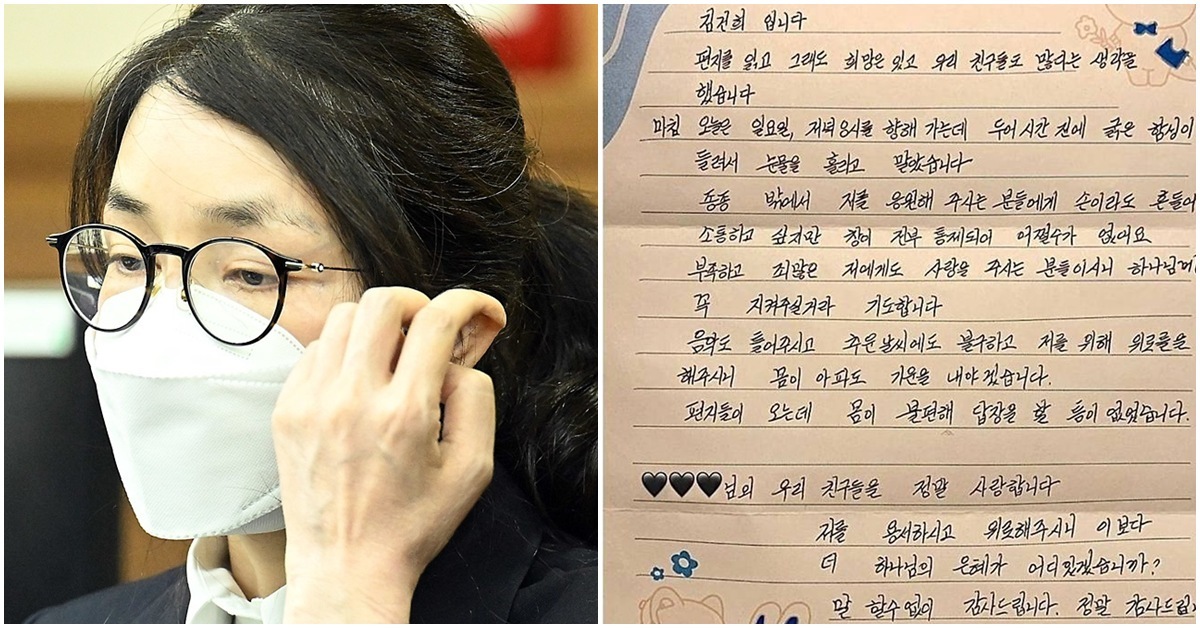 김건희 입니다
편지를 읽고 그래도 희망은 있고 우리 친구들도 많다는 생각을
했습니다
마침 오늘은 일요일, 저녁 8시를 향해 가는데 두어시간 전에 굵은 함성이
들려서 눈물을 흘리고 말았습니다
종종 밖에서 저를 응원해 주시는 분들에게 손이라도 흔들어
소통하고 싶지만 창이 전부 통제되어 어쩔수가 없어요
부족하고 죄많은 저에게도 사랑을 주시는 분들이시니 하나님께
꼭 지켜주실거라 기도합니다
음악도 틀어주시고 추운날씨에도 불구하고 저를 위해 위로를
해주시니 몸이 아파도 기운을 내야겠습니다.
편지들이 오는데 몸이 불편해 답장을 할 틈이 없었습니다.
🖤🖤🖤님의 우리 친구들을 정말 사랑합니다
저를 용서하시고 위로해주시니 이보다
더 하나님의 은혜가 어디있겠습니까?
말 할수없이 감사드립니다. 정말 감사드립